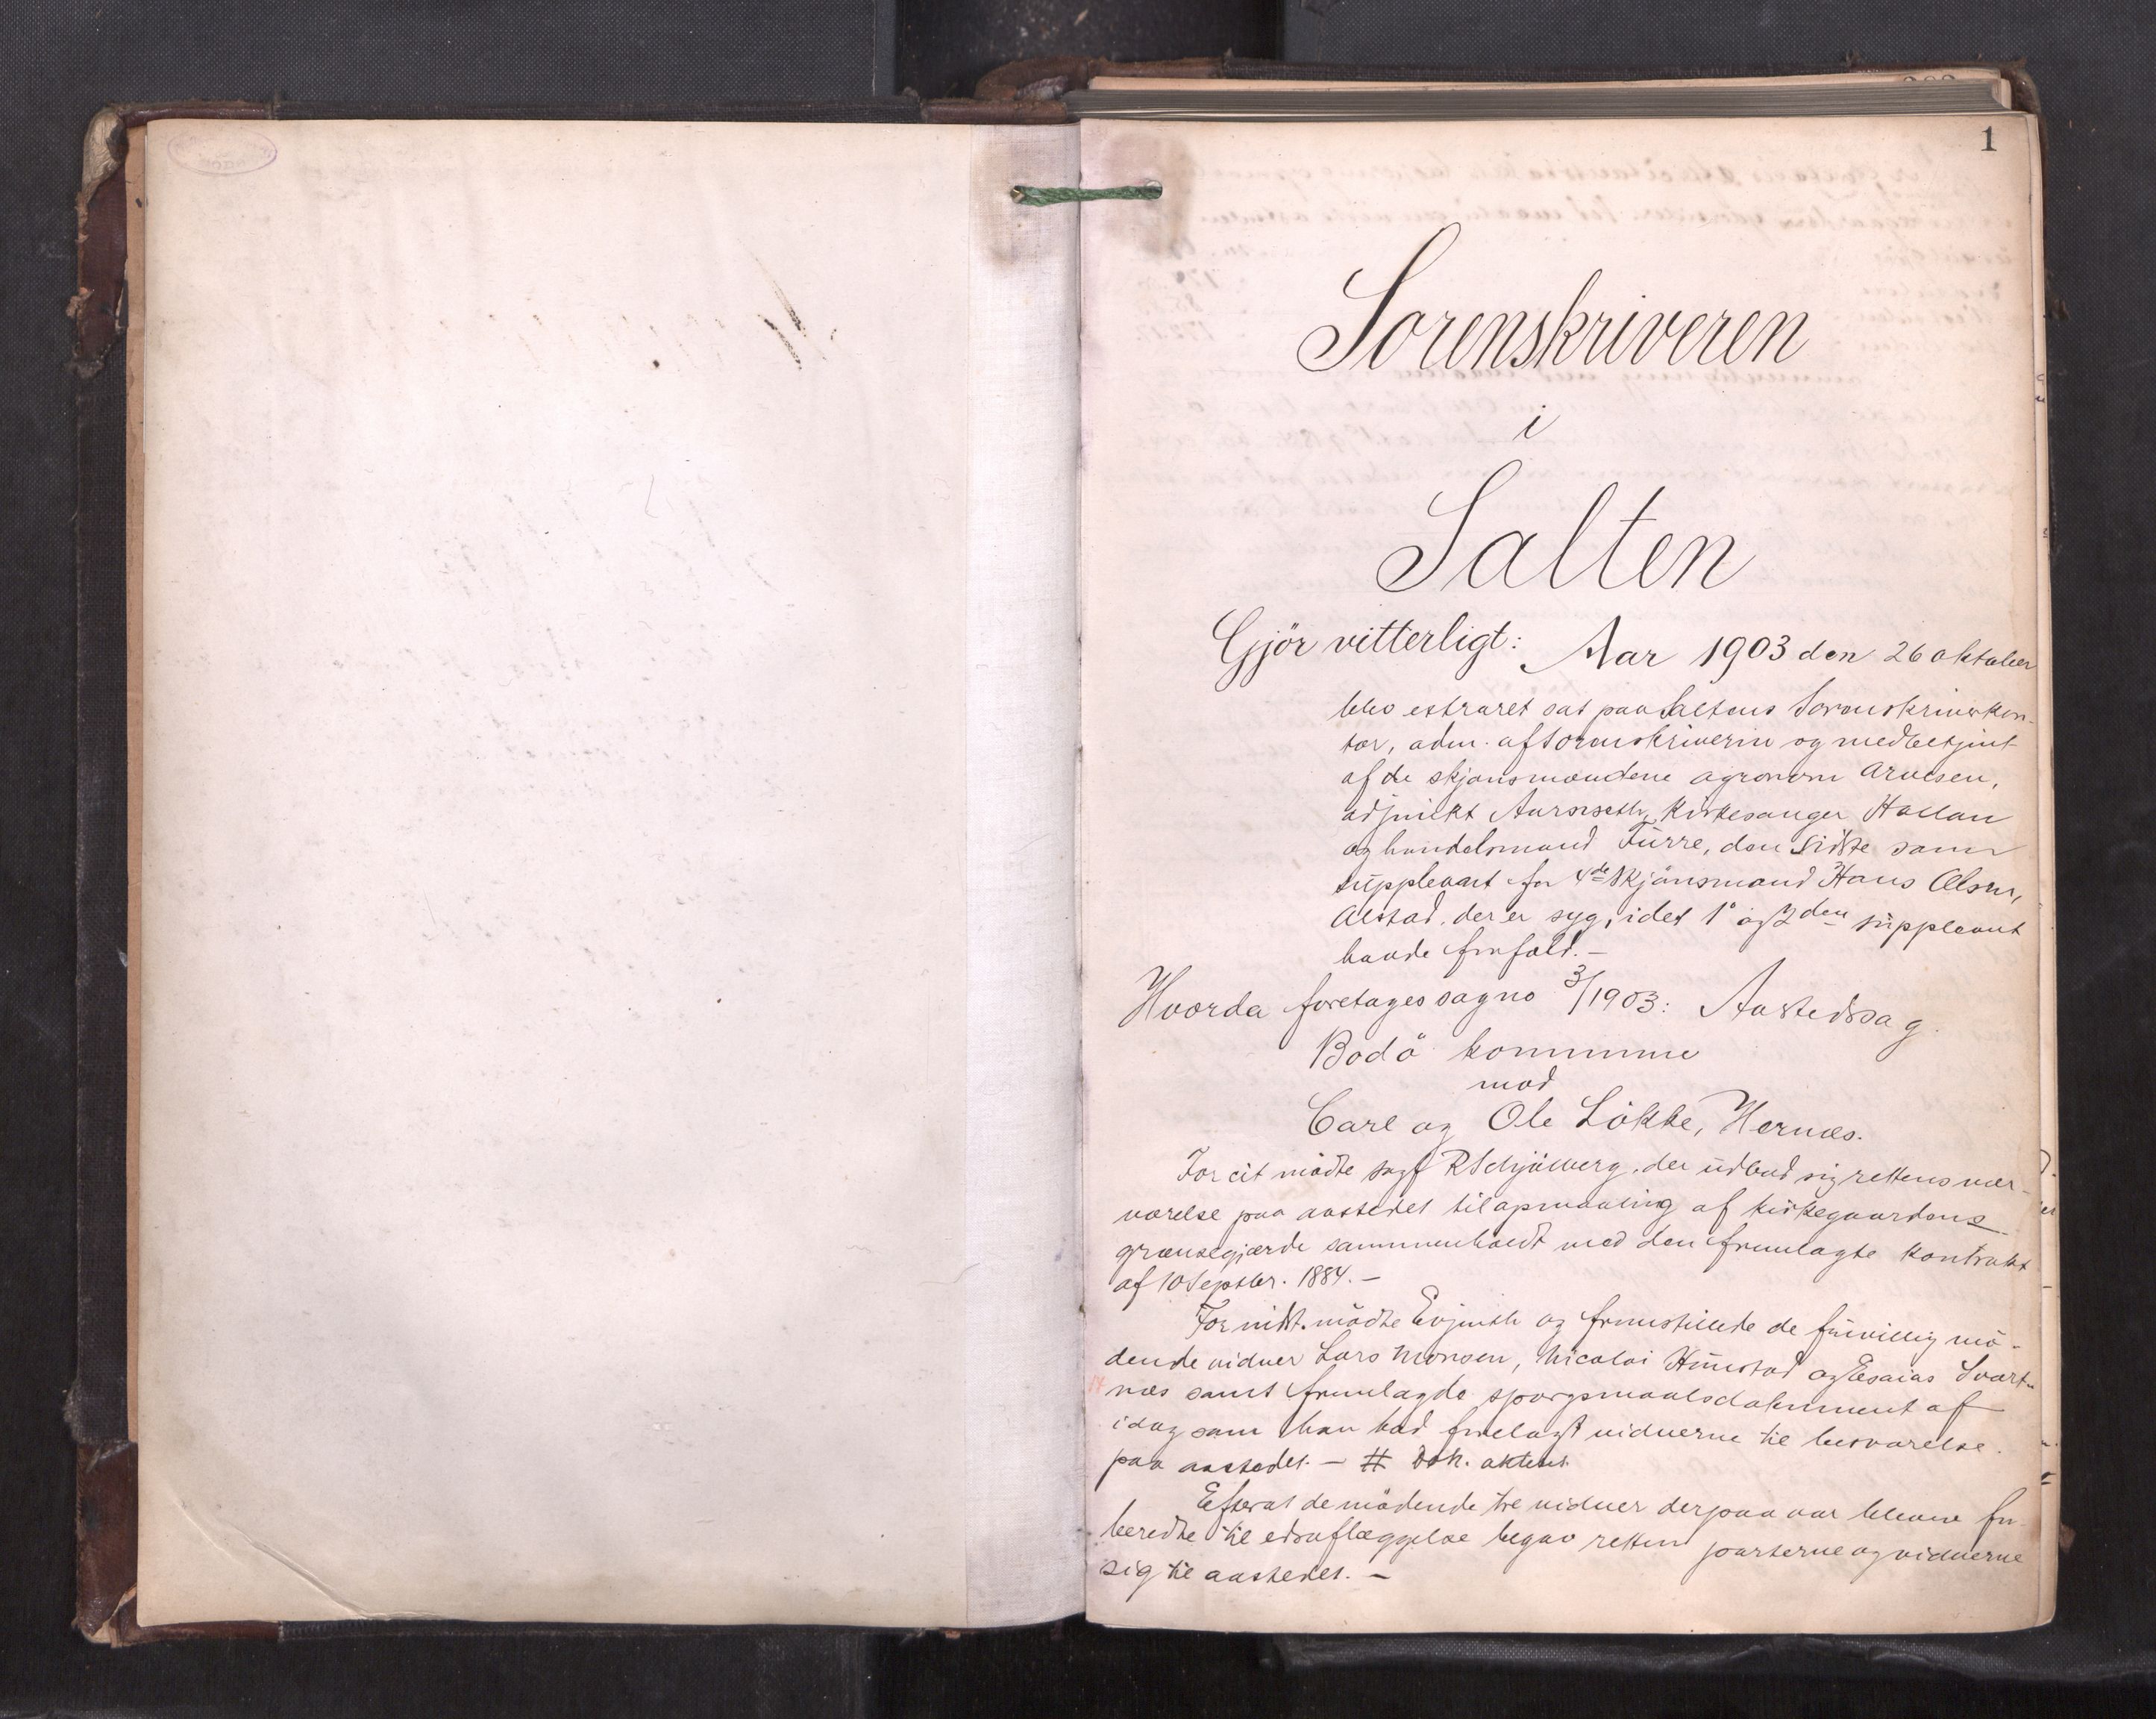 1
Sorenskriveren
i
Salten
Gjör vitterligt: Aar 1903 den 26 oktober
blev extraret sat paa Saltens Sorenskriverkon-
tor, adm. af sorenskriveren og medbetjent
af de skjönsmændene agronom Arnesen,
adjunkt Kirkesanger Hallan
og handelsmand Furre, den sidste som
suppleant for 4de Skjönsmand Hans Olsen,
Alstad, der er syg, idet 1ste og 2den suppleant
havde forfald. -
Hvorda foretages sag no 3/1903: Aastedssag
Bodö kommune
mod
Carl og Ole Lökke, Hernæs.
For cit mödte sagf R Schjölberg, der udbad sig rettens nær-
værelse paa aastedet til opmaaling af kirkegaardens
grænsegjærde sammenholdt med den fremlagte kontrakt
af 10 Septbr. 1884. -
For indst. mödte Evjenth og fremstillede de frivillig mö-
dende vidner Lars Monsen, Nicolai Hunstad og Esaias Svart-
næs samt fremlagde spörgsmaalsdokument af
idag som han bad forelagt vidnerne til besvarelse
paa aastedet. - # Dok. aktens.
Efterat de mödende tre vidner derpaa var blevne for-
beredte til edsaflæggelse begav retten parterne og vidnerne
sig til aastedet. -